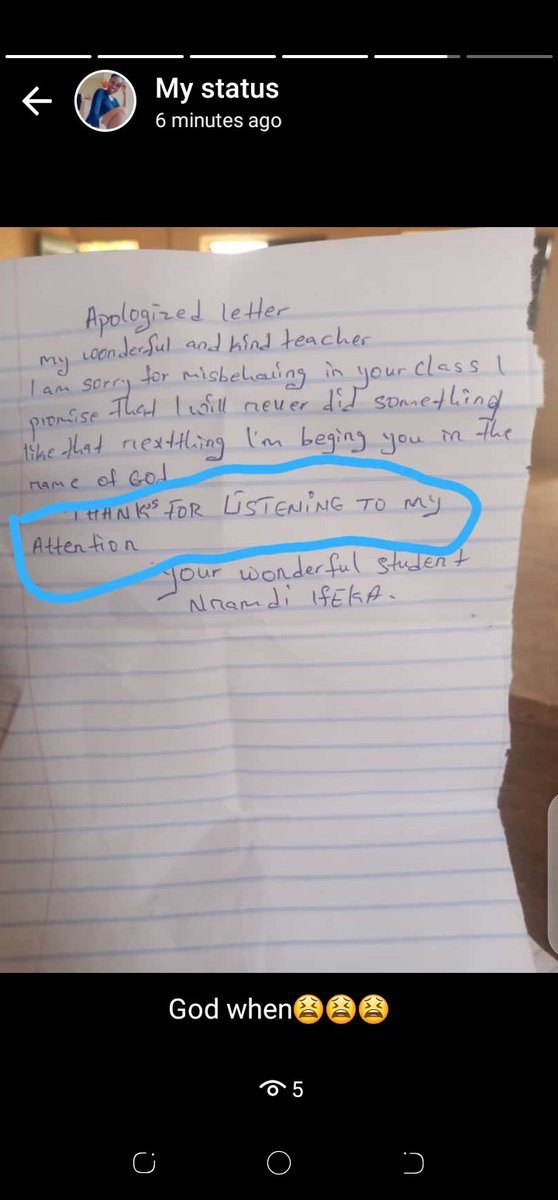 My status
6 minutes ago
Apologized letter
my wonderful and kind teacher
I am sorry for misbehaiing in your class I
promise that I will never did something
like that nextthing I'm beging you in the
name of GOd
THANKS FOR LISTENING TO my
Attention
your wonderful student
Nnamdi IfEKA.
God when😫😫😫
5